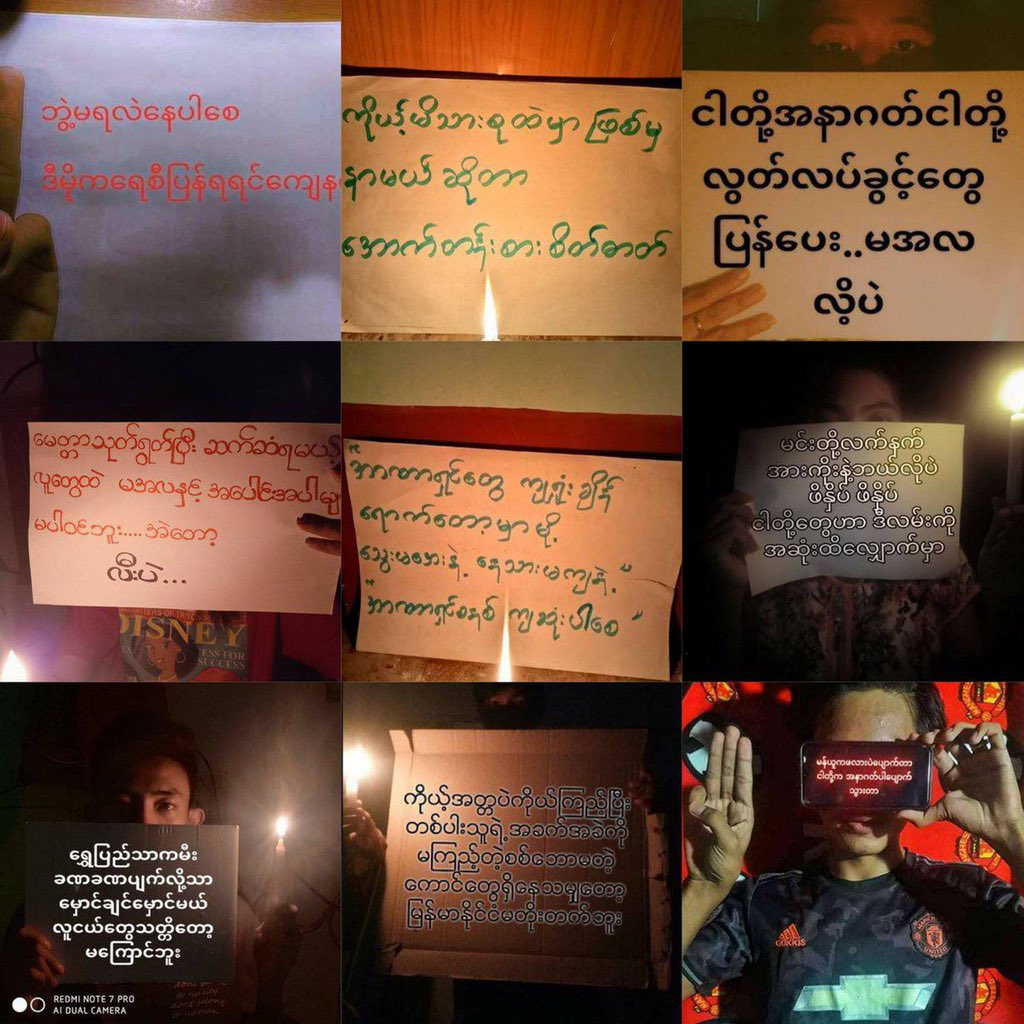 ဘွဲ့မရလဲနေပါစေ
ဒီမိုကရေစီပြန်ရရင်ကျေန
ကိုယ့်မိသားစုထဲမှာ ဖြစ်မှ
နာမယ် ဆိုတာ
အောက်တန်းစားစိတ်ဓာတ်
ငါတို့အနာဂတ်ငါတို့
လွတ်လပ်ခွင့်တွေ
ပြန်ပေး..မအလ
လို့ပဲ
မေတ္တာသုတ်ရွတ်ပြီး ဆက်ဆံရမယ့်
လူတွေထဲ မအလနှင့် အပေါင်းအပါမျ
မပါဝင်ဘူး....အဲတော့
လီးပဲ...
DISNEY
ESS FOR
SUCCESS
"အာဏာရှင်တွေ ကျရှုံးချိန်
ရောက်တော့မှာမို့
သွေးမအေးနဲ့ နေသားမကျနဲ့"
"အာဏာရှင်စနစ် ကျဆုံးပါစေ"
မင်းတို့လက်နက်
အားကိုးနဲ့ဘယ်လိုပဲ
ဖိနှိပ် ဖိနှိပ်
ငါတို့တွေဟာ ဒီလမ်းကို
အဆုံးထိလျှောက်မှာ
ရွှေပြည်သာကမီး
ခဏခဏပျက်လို့သာ
မှောင်ချင်မှောင်မယ်
လူငယ်တွေသတ္တိတော့
မကြောင်ဘူး
REDMI NOTE 7 PRO
AI DUAL CAMERA
ကိုယ့်အတ္တပဲကိုယ်ကြည့်ပြီး
တစ်ပါးသူရဲ့အခက်အခဲကို
မကြည့်တဲ့စစ်ဘောမတဲ့
ကောင်တွေရှိနေသမျှတော့
မြန်မာနိုင်ငံမတိုးတက်ဘူး
မန်ယူကဖလားပဲပျောက်တာ
ငါတို့က အနာဂတ်ပါပျောက်
သွားတာ
adidas
MANCHESTER
UNITED
CHEVROLET